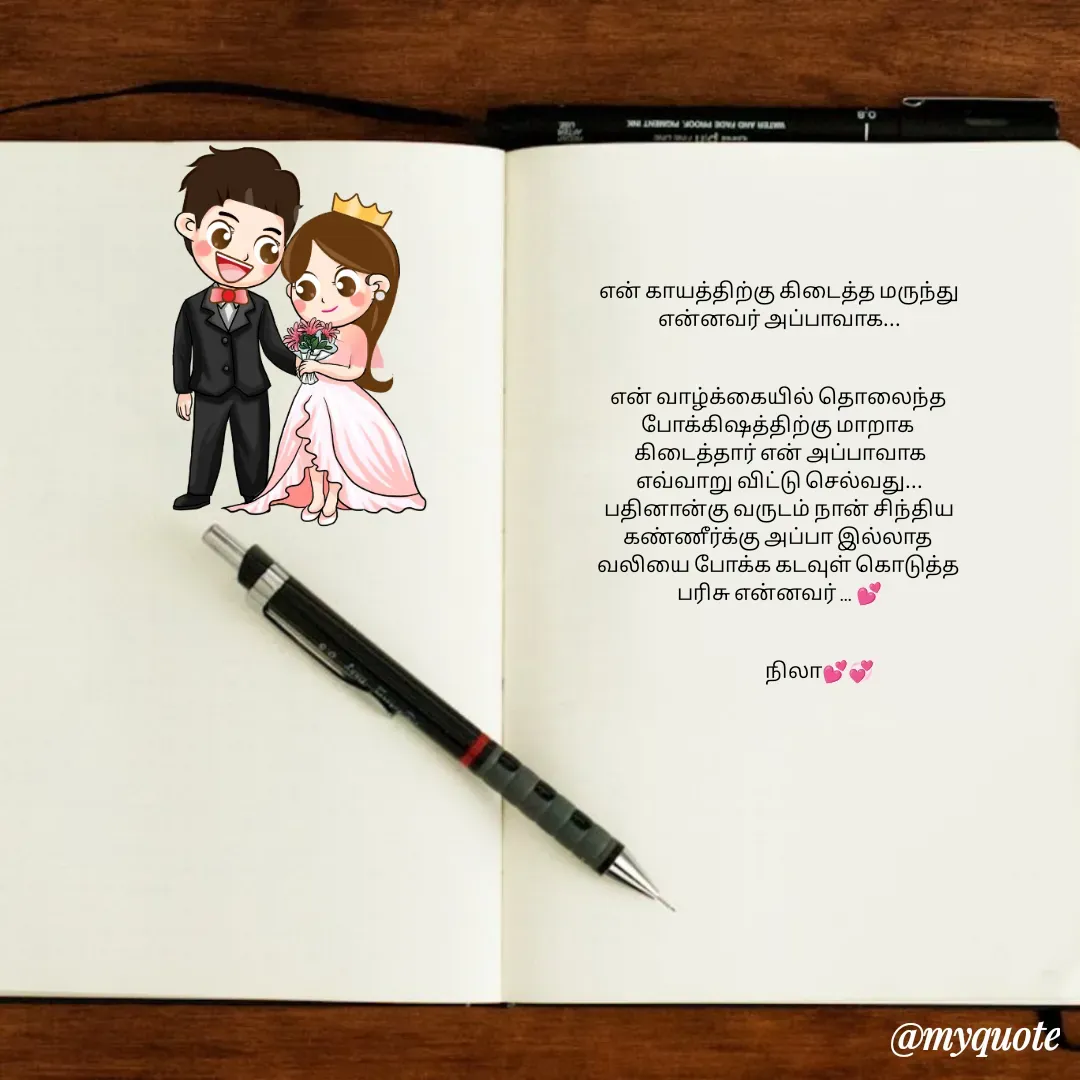 என் காயத்திற்கு கிடைத்த மருந்து
என்னவர் அப்பாவாக...
என் வாழ்க்கையில் தொலைந்த
போக்கிஷத்திற்கு மாறாக
கிடைத்தார் என் அப்பாவாக
எவ்வாறு விட்டு செல்வது...
பதினான்கு வருடம் நான் சிந்திய
கண்ணீர்க்கு அப்பா இல்லாத
வலியை போக்க கடவுள் கொடுத்த
பரிசு என்னவர் ... 💕
நிலா💕💞
WATER AND FADE PROOF, PIGMENT INK
0.8
@myquote